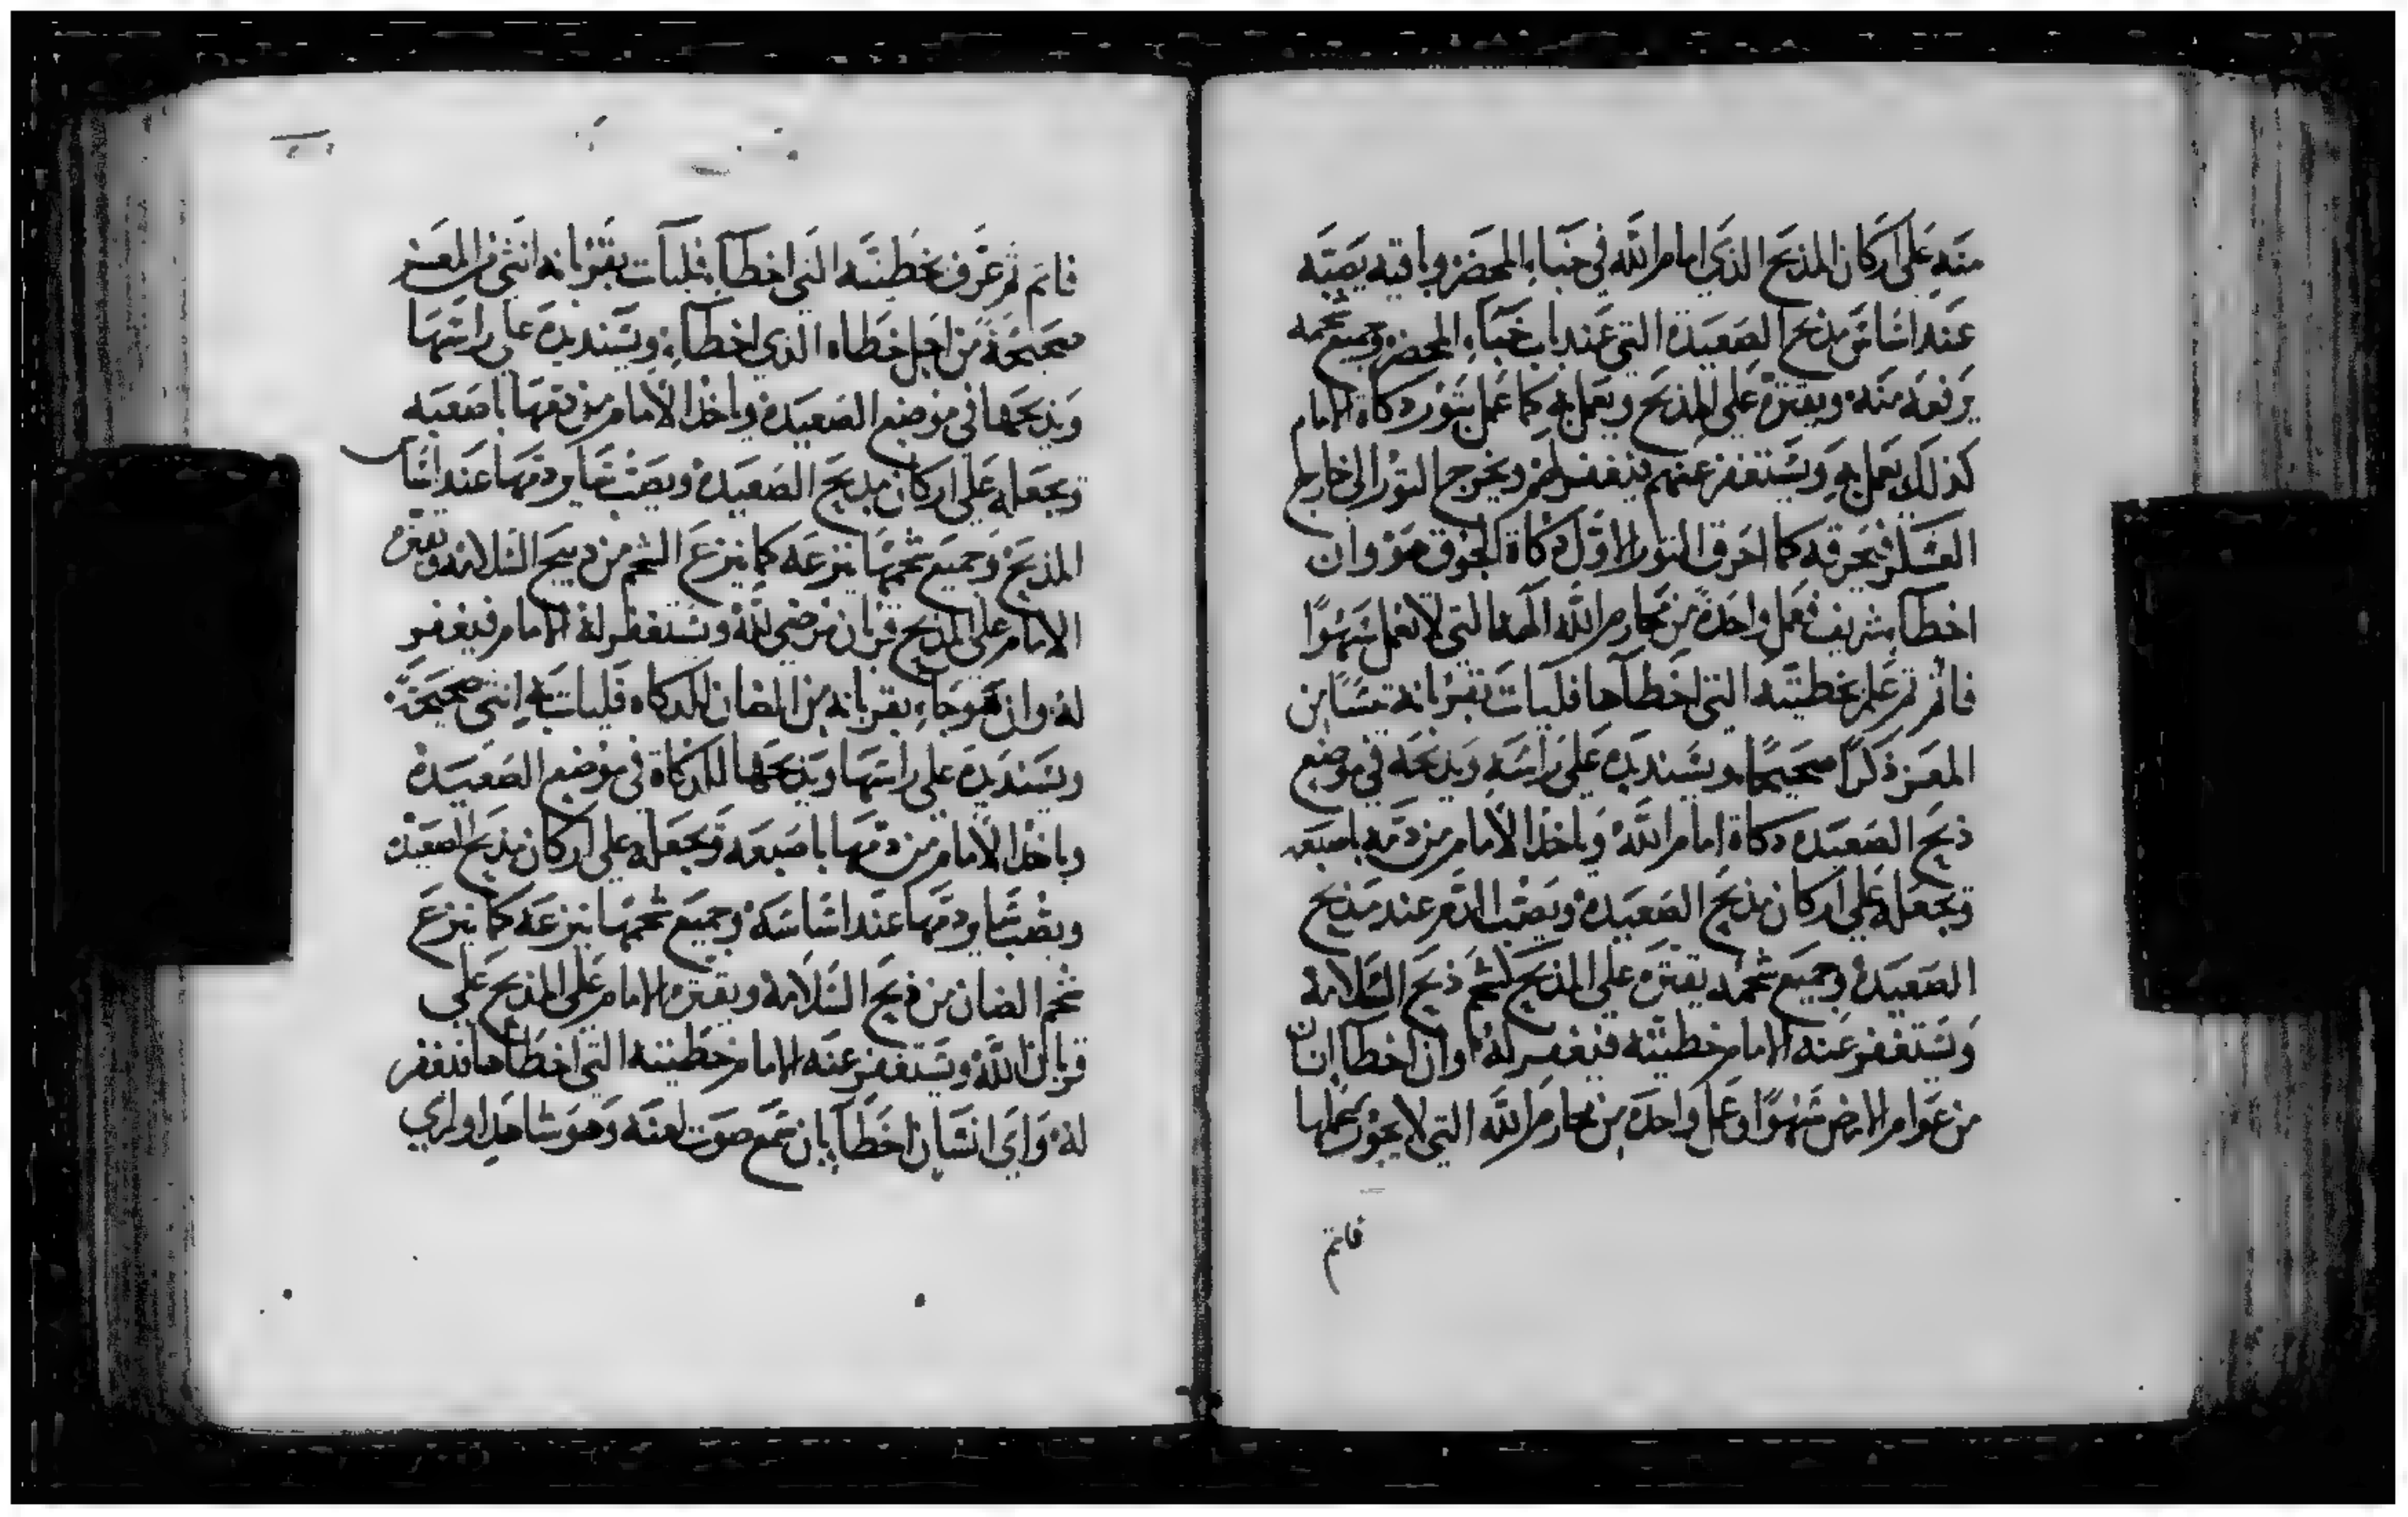 منه على اركان المذبح الذي امام الله في خباء المحضر وباقيه يصبه
عند اساس مذبح الصعيدة التي عند باب خباء المحضر وجميع شحمه
يرفعه منه ويقتره على المذبح ويعمل به كما عمل بثور ذكاة الامام
كذلك يعمل به ويستغفر عنهم فيغفر لهم ويخرج الثور الى خارج
العسكر فيحرقه كما احرق الثور الاول ذكاة الجوق هو وان
اخطا شريف فعمل واحدة من محارم الله الهه التي لا تعمل سهوا
فاثم ثم علم بخطيته التي اخطاها فليات بقربانه تيسا من
المعز ذكرا صحيحا ويسند يده على راسه ويذبحه في موضع
ذبح الصعيدة ذكاة امام الله وياخذ الامام من دمه باصبعه
ويجعله على اركان مذبح الصعيدة ويصب الدم عند مذبح
الصعيدة وجميع شحمه يقتره على المذبح كشحم ذبح السلامة
ويستغفر عنه الامام خطيته فيغفر له وان اخطا انسان
من عوام الارض سهوا وعمل واحدة من محارم الله التي لا يجوز عملها
فاثم
فاثم ثم عرف بخطيته التي اخطا فليات بقربانه انثى من المعز
صحيحة من اجل خطاه الذي اخطاء ويسند يده على راسها
ويذبحها في موضع الصعيدة وياخذ الامام من دمها باصبعه
ويجعله على اركان مذبح الصعيدة ويصب سائر دمها عند اساس
المذبح وجميع شحمها ينزعه كما ينزع الشحم من ذبيح السلامة ويقتره
الامام على المذبح قربان مرضي لله ويستغفر له الامام فيغفر
له وان هو جاء بقربانه من الضان للذكاه فليات به انثى صحيحة
ويسند يده على راسها ويذبحها للذكاة في موضع الصعيدة
وياخذ الامام من دمها باصبعه ويجعله على اركان مذبح الصعيدة
ويصب ساير دمها عند اساسه وجميع شحمها ينزعه كما ينزع
شحم الضان من ذبح السلامة ويقتره الامام على المذبح على
قربان الله ويستغفر عنه الامام خطيته التي اخطاها فيغفر
له واي انسان اخطا بان سمع صوت لعنه وهو شاهد او راي